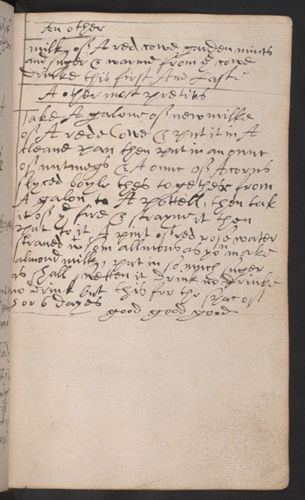 An other
milk of A red cowe garden mints
and suger & warme from ye cowe
drinke this first And Last
A other most pretius
Take A galone of new milke
of A rede Cowe & put it in A
cleane pan then put in an ounc
of nutmegs & A ounc of Acorns
slyced boyle thes together from
A galon to A pottell, then tak
it of ye fire & strayne it then
put to it A pint of red rose water
straned with allmons as yo make
almond milk, put in so much suger
as shall swetten it drink no drinke
drink but this for the spac of
5 or 6 dayes
good good good